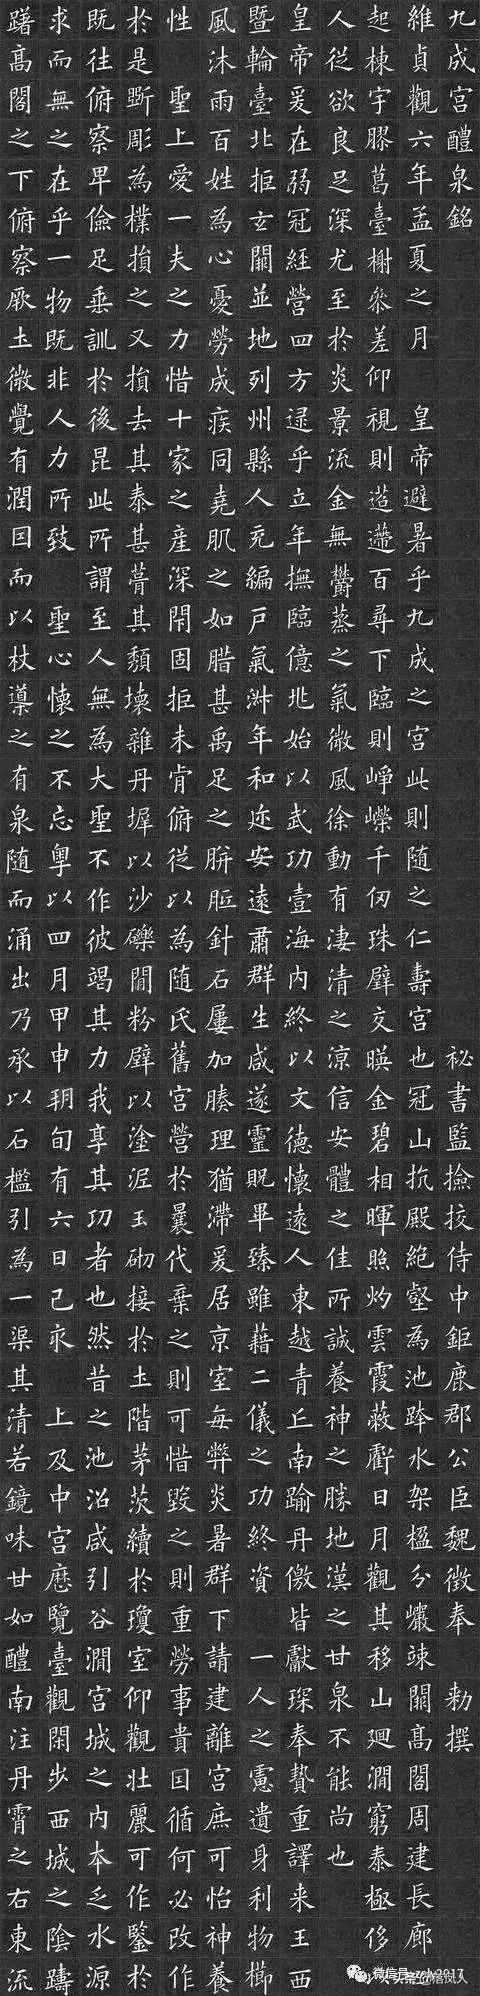 九成宫醴泉銘 祕書監撿挍侍中鉅鹿郡公臣魏徵奉 勑撰
維貞觀六年孟夏之月 皇帝避暑乎九成之宮此則随之仁壽宮也冠山抗殿絶壑為池跨水架楹分巗竦闕高閣周建長廊
起棟宇膠葛臺榭叅差仰視則迢遰百尋下臨則崢嶸千仞珠璧交暎金碧相暉照灼雲霞蔽虧日月觀其移山廻澗窮泰極侈
人從欲良足深尤至於炎景流金無欝蒸之氣微風徐動有凄清之凉信安體之佳所誠養神之勝地漢之甘泉不能尚也
皇帝爰在弱冠經營四方逯乎立年撫臨億兆始以武功壹海内終以文德懷遠人東越青丘南踰丹儌 皆獻琛奉贄重譯来王西
暨輪臺北拒玄闕並地列州縣人充編戸氣淑年和迩安遠肅群生咸遂靈貺畢臻雖藉二儀之功終資 一人之慮遺身利物櫛
風沐雨百姓為心憂勞成疾同堯肌之如腊甚禹足之胼胝針石屢加腠理猶滯爰居京室每弊炎暑群下請建離宮庶可怡神養
性 聖上愛一夫之力惜十家之産深閇固拒未肯俯從以為随氏舊宮營於曩代棄之則可惜毀之則重勞事貴因循何必改作
於是斵彫為樸損之又損去其泰甚葺其頹壞雜丹墀以沙礫間粉壁以塗泥玉砌接於土階茅茨續於瓊室仰觀壯麗可作鑒於
既往俯察卑儉足垂訓於後昆此所謂至人無為大聖不作彼竭其力我享其功者也然昔之池沼咸引谷澗宮城之内本乏水源
求而無之在乎一物既非人力所致 聖心懷之不忘粤以四月甲申朔旬有六日己亥 上及中宮歷覽臺觀閑步西城之陰躊
躇高閣之下俯察厥土微覺有潤因而以杖導之有泉随而涌出乃承以石檻引為一渠其清若鏡味甘如醴南注丹霄之右東流
微信号: zch2017